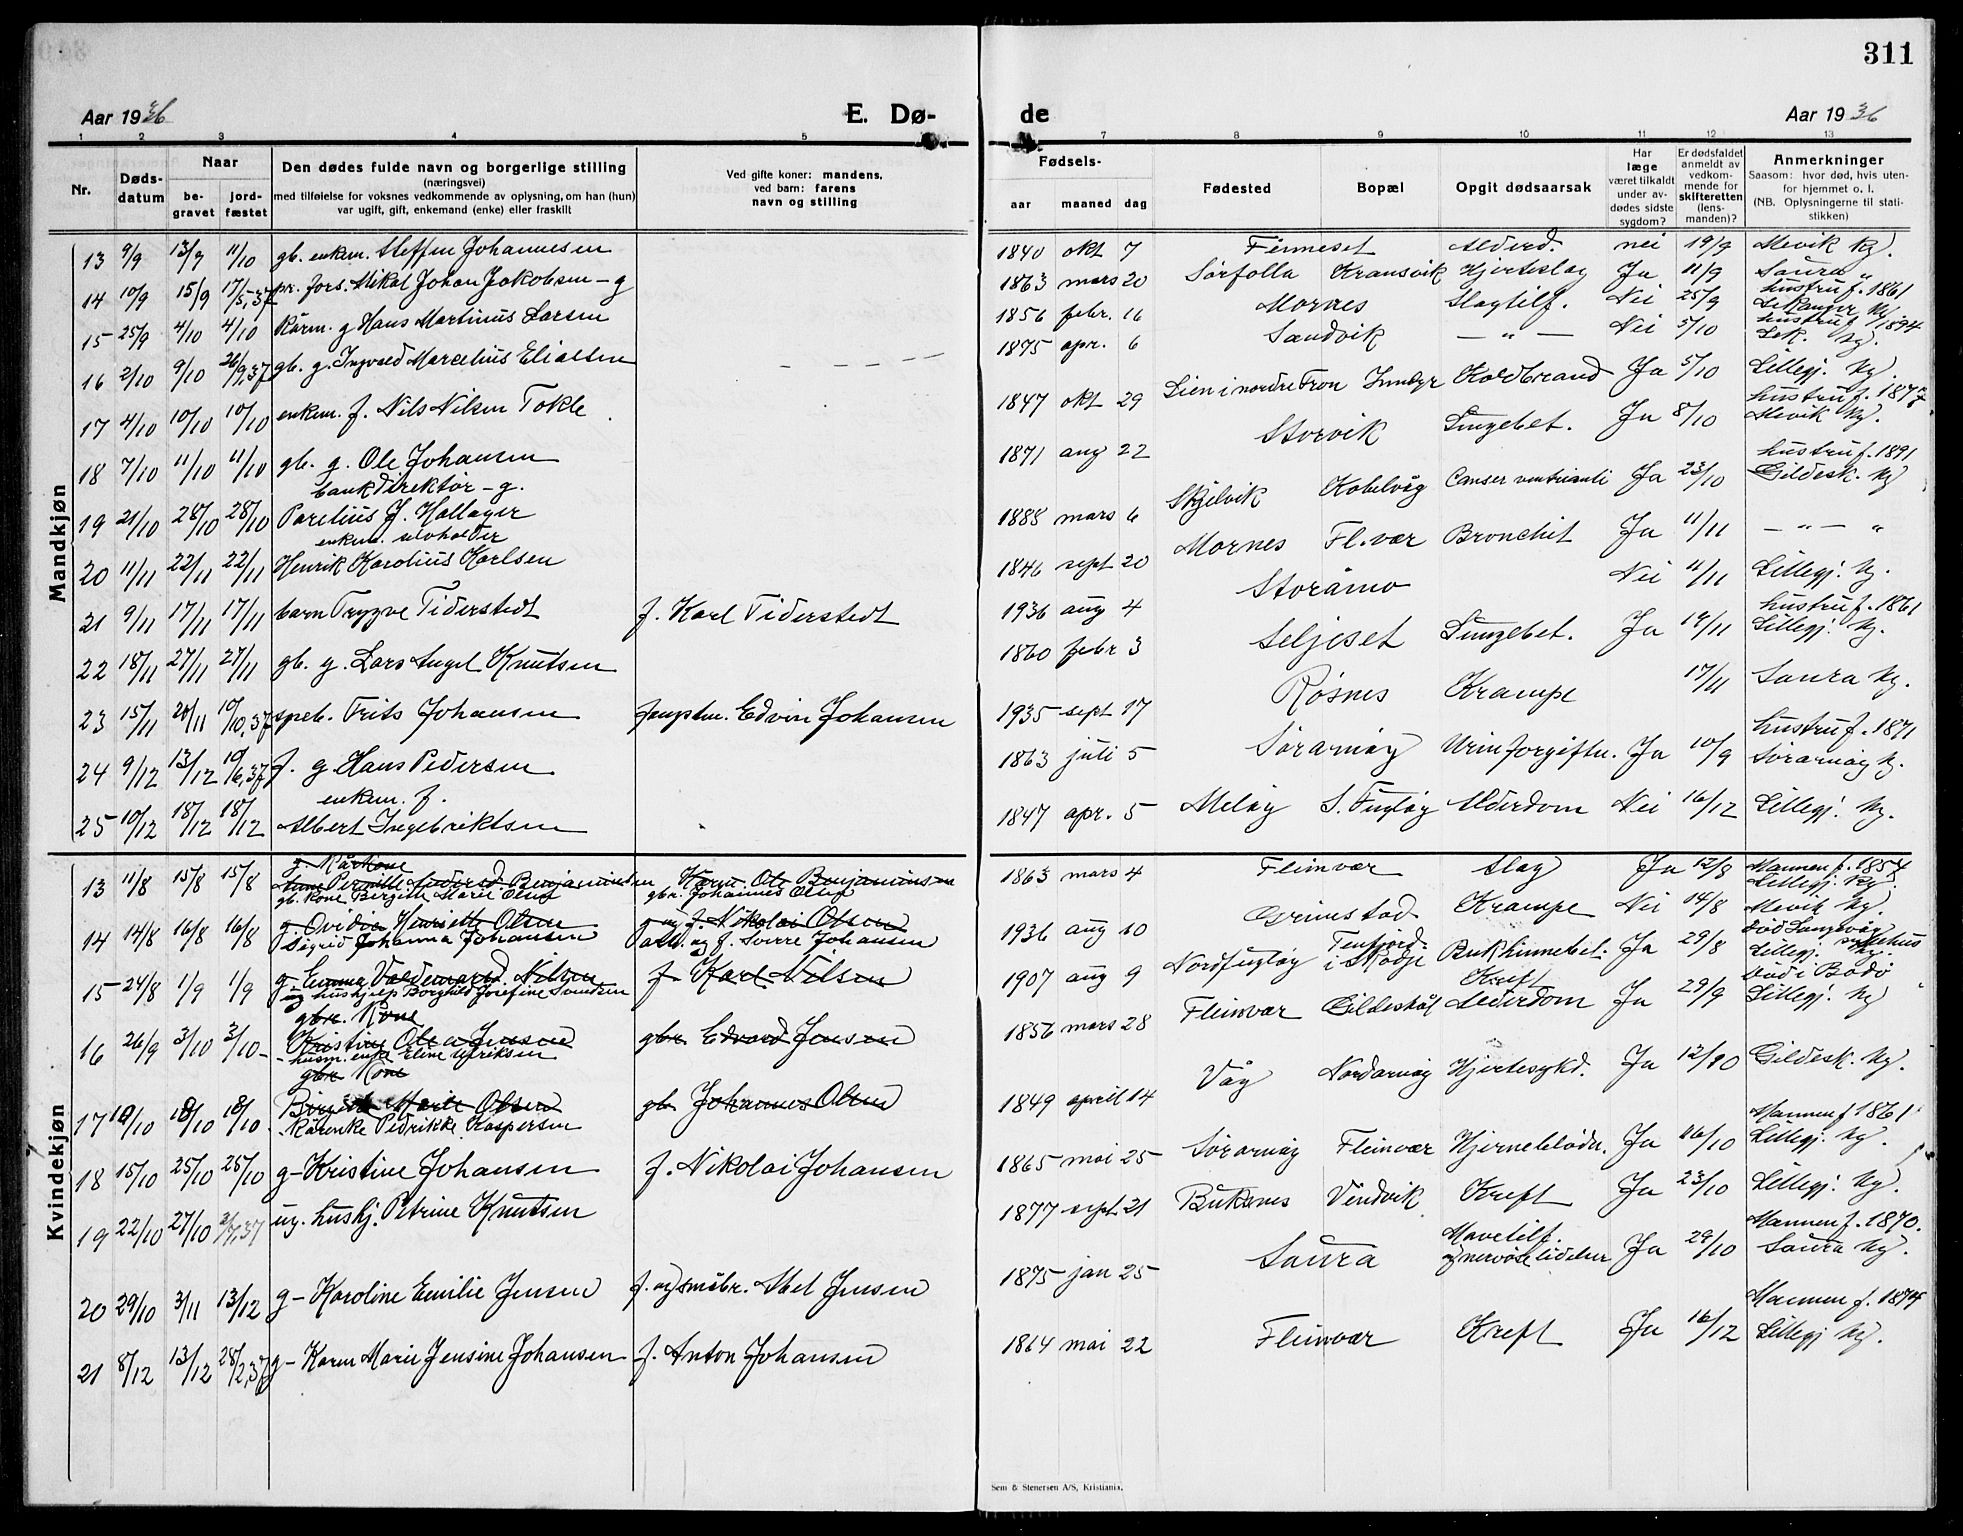 311
Aar 1936
E. Dø-
de
Aar 1936
1 2 3 4 5 7 8 9 10 11 12 13
Nr.
Døds-
datum
Naar
be-
gravet
jord-
fæstet
Den dødes fulde navn og borgerlige stilling
(næringsvei)
med tilføielse for voksnes vedkommende av oplysning, om han (hun)
var ugift, gift, enkemand (enke) eller fraskilt
Ved gifte koner: mandens,
ved barn: farens
navn og stilling
Fødsels-
aar maaned dag
Fødested
Bopæl
Opgit dødsaarsak
Har
læge
været tilkaldt
under av-
dødes sidste
sygdom?
Er dødsfaldet
anmeldt av
vedkom-
mende for
skifteretten
(lens-
manden)?
Anmerkninger
Saasom: hvor død, hvis uten-
for hjemmet o. l.
(NB. Oplysningerne til stati-
stikken)
Mandkjøn
13 9/9 13/9 11/10 gb. enkem. Steffen Johannesen 1840 okt 7 Finneset Alderd. nei 19/9 Mevik kg.
14 10/9 15/9 17/5,37 pr. fors. Mikal Johan Jakobsen - g 1863 mars 20 Sørfolla Kransvik Hjerteslag Ja 11/9 Saura "
hustru f. 1861
15 25/9 4/10 4/10 Kårm. g Hans Martinus Larsen 1856 febr. 16 Mornes Slagtilf. Nei 25/9
hustru f 1894
16 2/10 9/10 26/9,37 gb. g. Ingvald Marcelius Eliassen 1875 apr. 6 Sandvik — " — Nei 5/10
17 4/10 10/10 10/10 enkem. f. Nils Nilsen Tokle 1847 okt 29 Lien i nordre Fron Inndyr Koldbrand Ja 5/10 Lillegj. kg.
hustru f. 1877
18 7/10 11/10 11/10 gb. g. Ole Johansen 1871 aug 22 Storvik Lungebet. Ja 8/10 Mevik kg.
hustru f. 1891
bankdirektør - g.
19 21/10 28/10 28/10 Parelius J. Hallager 1888 mars 6 Skjelvik Kobelvåg Canser ventrianti Ja 23/10 Gildesk. kg
enkem. selvholder
20 11/11 22/11 22/11 Henrik Karolius Karlsen 1846 sept 20 Mornes Fl.vær Bronchit Ja 11/11 — " — "
21 9/11 17/11 17/11 barn Trygve Tiderstedt f. Karl Tiderstedt 1936 aug 4 Storåmo Nei 11/11 Lillegj. kg.
hustru f. 1861
22 18/11 27/11 27/11 gb. g. Lars Angel Knutsen 1860 febr 3 Seljeset Lungebet. Ja 19/11 Lillegj. kg.
23 15/11 20/11 10/10,37 speb. Frits Johansen Edvin Johansen 1935 sept 17 Røsnes Krampe 17/11 Saura kg.
hustru f. 1871
24 9/12 13/12 10/6,37 f. g Hans Pedersen 1863 juli 5 Sørarnøy Urinforgiftn. Ja 10/9 Sørarnøy k.
enkem. f.
25 10/12 18/12 18/12 Albert Ingebriktsen 1847 apr. 5 Meløy S. Fugløy Alderdom Nei 16/12 Lillegj. kg.
Kvindekjøn
g. Kårkone
13 11/8 15/8 15/8 Anne Pernille Benjaminsen Karm. Ole Benjaminsen 1863 mars 4 Fleinvær Slag Ja 12/8 Mannen f. 1854
gb. kone Birgitte Marie Olsen gbr. Johannes Olsen Lillegj. kg.
g- Ovidia Henriette Olsen g og f. Nikolai Olsen
14 14/8 16/8 16/8 Sigrid Johanna Johansen arb. og f. Sverre Johansen 1936 aug 10 Grimstad Krampe Nei 14/8 Mevik kg.
død
g- Emma Valdemarsd. Nilsen f. Karl Nilsen
15 24/8 1/9 1/9 ug hushjelp Borghild Josefine Svendsen 1907 aug 9 Nordfugløy Tenfjord i Skodje Bukhinnebet. Ja 29/8 Lillegj. kg.
gbr. Kone Kreft død i Bodø
Kristine Olea Jensen gbr Edvard Jensen
16 26/9 3/10 3/10 - husm. enke Eline Ulriksen 1856 mars 28 Fleinvær Gildeskål Alderdom Ja 29/9 Lillegj. kg
gbr Kone
Birgitte Marie Olsen gb Johannes Olsen
17 10/10 18/10 18/10 Kårenke Pedrikke Kaspersen 1849 april 14 Våg Nordarnøy Hjertesykd. Ja 12/10 Gildesk. kg.
Mannen f 1861
18 15/10 25/10 25/10 g- Kristine Johansen f. Nikolai Johansen 1865 mai 25 Sørarnøy Fleinvær Hjerneblødn. Ja 16/10 Lillegj. kg.
19 22/10 27/10 2/7,37 ug. hushj. Petrine Knutsen 1877 sept 21 Buksnes Vindvik Kreft Ja 23/10 Lillegj. kg.
Mavetilf. Mannen f. 1870.
20 29/10 3/11 13/12 g- Karoline Emilie Jensen f. og småbr. Abel Jensen 1875 jan 25 Saura og nervøse lidelser Ja 29/10 Saura kg.
Mannen f. 1874
21 8/12 13/12 28/2,37 g- Karen Marie Jensine Johansen f. Anton Johansen 1864 mai 22 Fleinvær Kreft Ja 16/12 Lillegj kg.
Sem & Stenersen A/S, Kristiania.